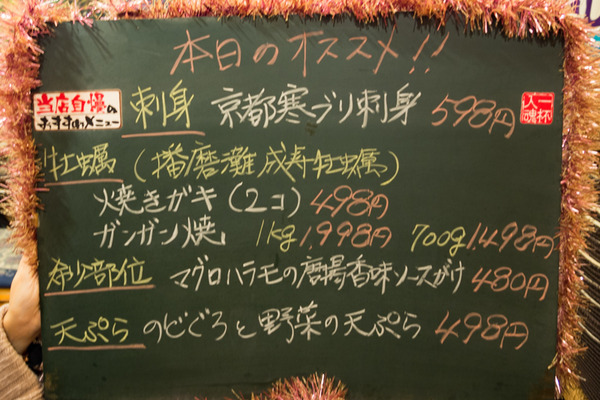 本日のオススメ!!
当店自慢の
おすすめメニュー
刺身 京都寒ブリ刺身 598円
牡蠣 (播磨灘成寿牡蠣)
焼きガキ(2コ) 498円
ガンガン焼 1kg 1,998円 700g 1,498円
希少部位 マグロハラモの磨場香味ソースがけ 480円
天ぷら のどぐろと野菜の天ぷら 498円